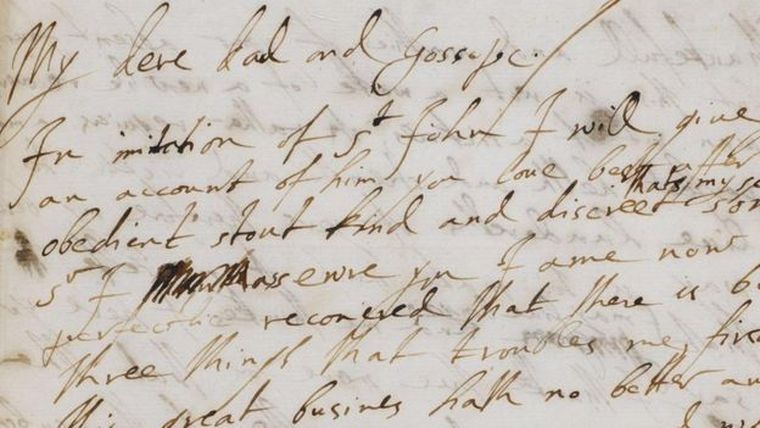 My dere dad and Gossope.
In imitation of St John I will give
an account of him you love best after
thats my se
obedient stout kind and discreet son
Sr I assewre you I ame now
perfectlie recovered that there is b
three things that troubles me, firs
this great busines hath no better an